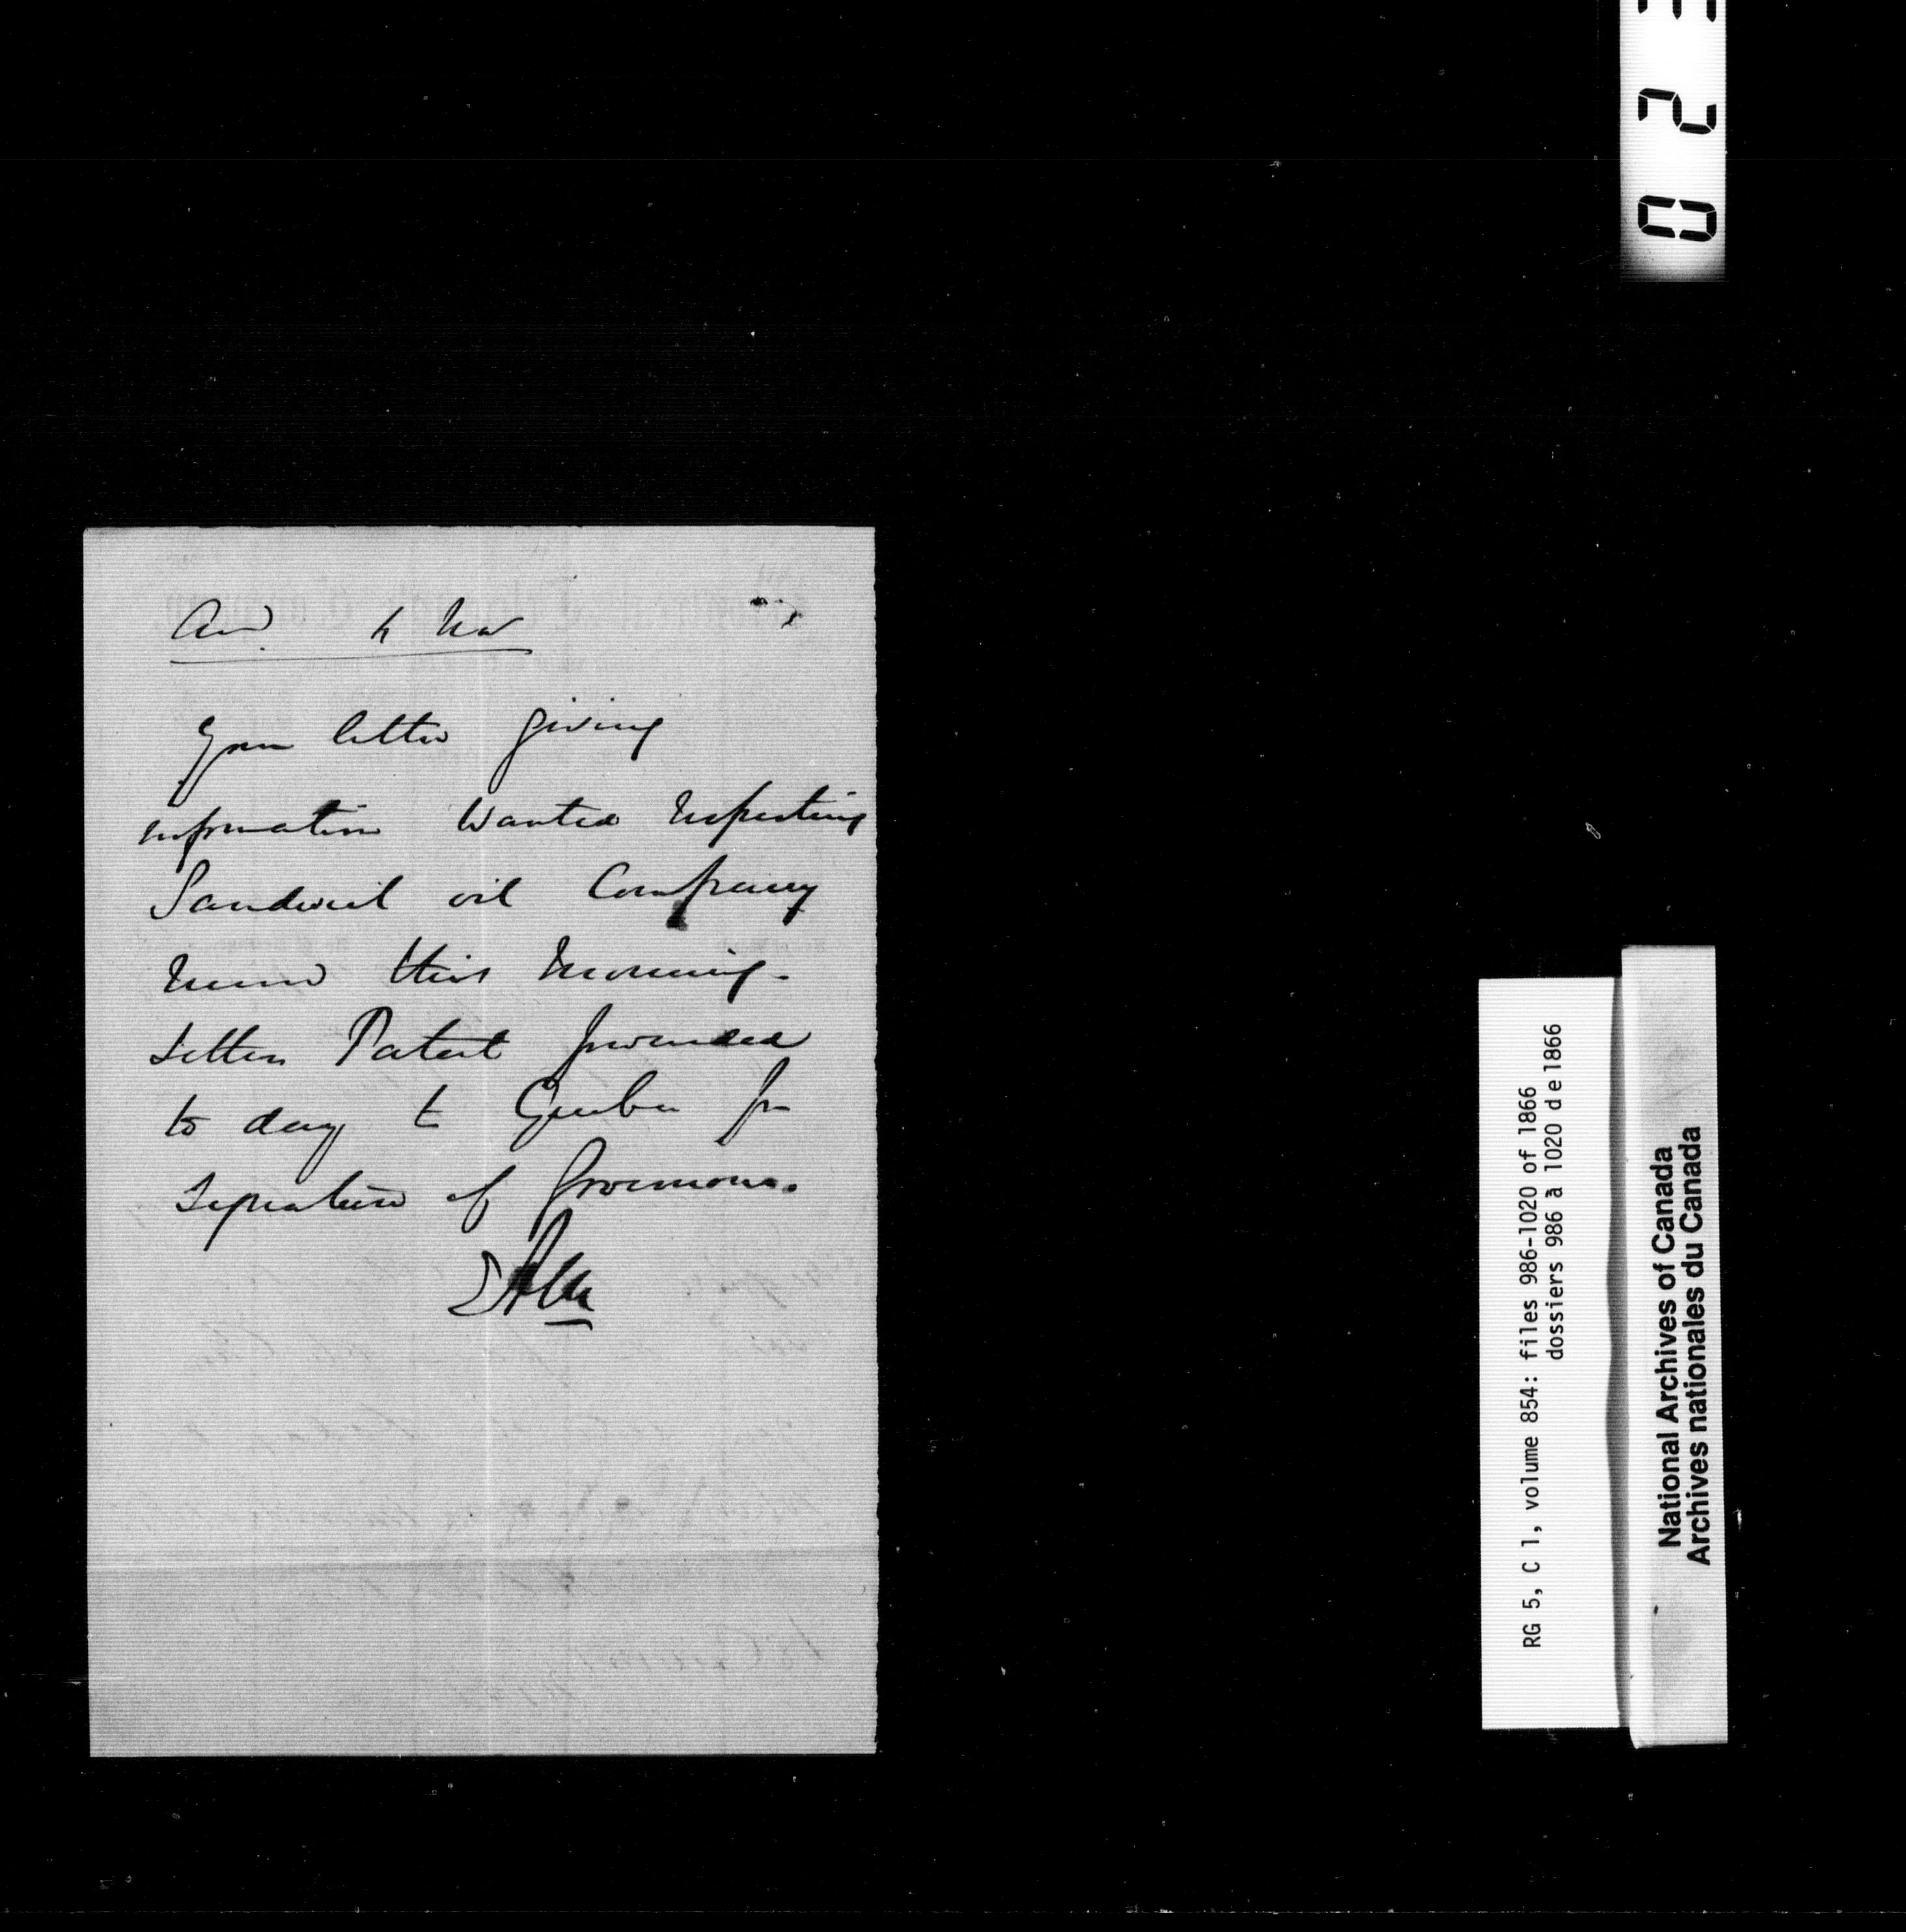 023
Your letter giving
information wanted respecting
Sandwich oil Company
recd this morning.
Letters Patent forwarded
to day to Quebec for
signature of Governor.
RG 5, C 1, volume 854: files 986-1020 of 1866
dossiers 986 à 1020 de 1866
National Archives of Canada
Archives nationales du Canada